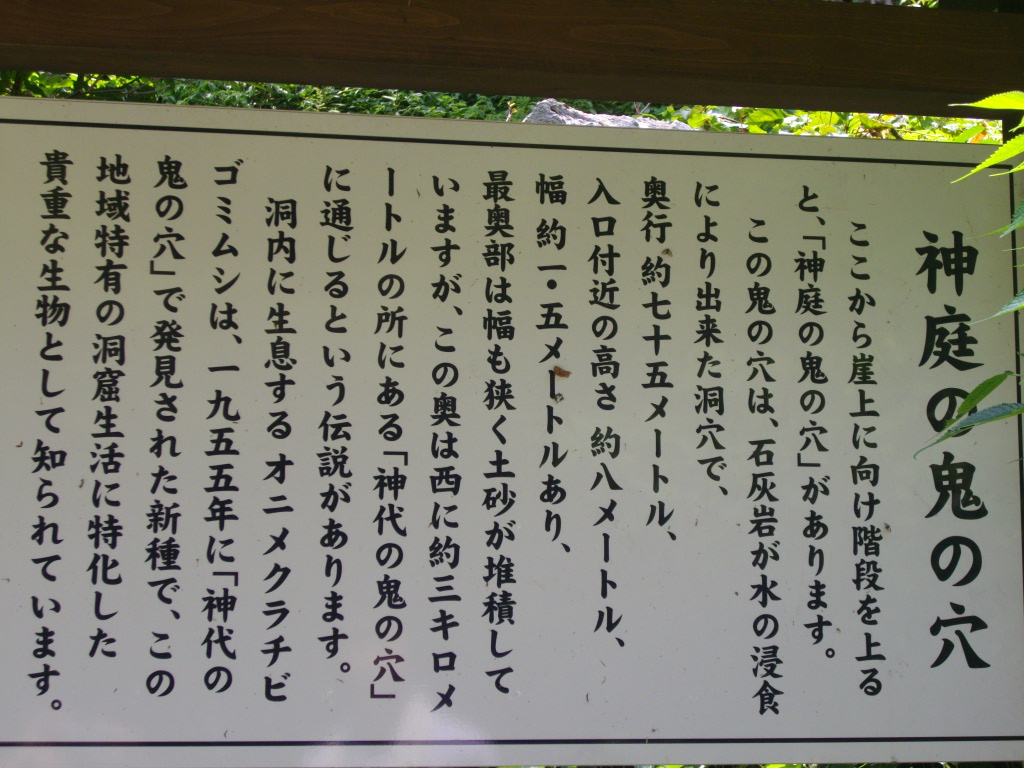 神庭の鬼の穴
ここから崖上に向け階段を上る
と、「神庭の鬼の穴」があります。
この鬼の穴は、石灰岩が水の浸食
により出来た洞穴で、
奥行 約七十五メートル、
入口付近の高さ 約八メートル、
幅 約一・五メートルあり、
最奥部は幅も狭く土砂が堆積して
いますが、この奥は西に約三キロメ
ートルの所にある「神代の鬼の穴」
に通じるという伝説があります。
洞内に生息する オニメクラチビ
ゴミムシは、一九五五年に「神代の
鬼の穴」で発見された新種で、この
地域特有の洞窟生活に特化した
貴重な生物として知られています。